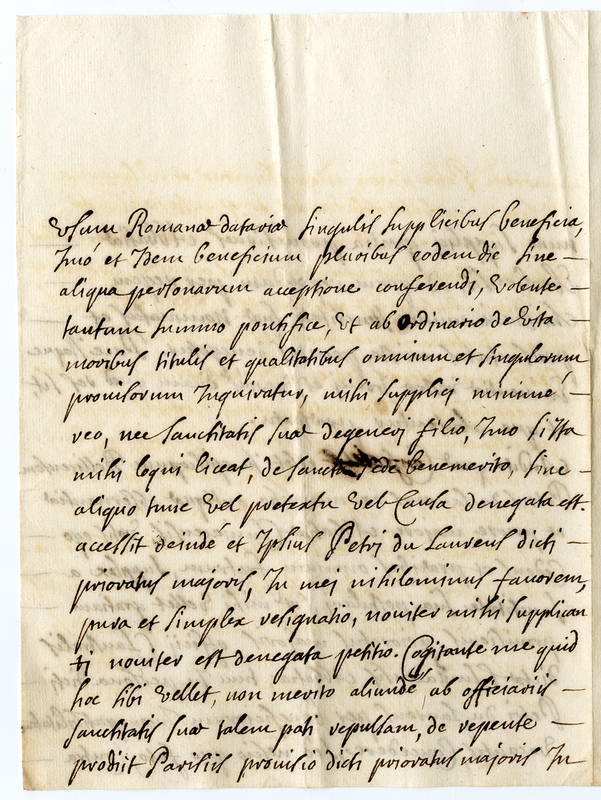 usum Romanæ datariæ singulis supplicibus beneficia,
Imó et Idem beneficium pluribus eodem die sine –
aliqua personarum acceptione conferendi, volente –
tantum summo pontifice, ut ab ordinario de vita –
moribus titulis et qualitatibus omnium et singulorum
provisorum Inquiratur, mihi supplici minimé –
reo, nec sanctitatis suæ degeneri filio, Imo si ita
mihi loqui liceat, de sancta sede benemerito, sine –
aliquo tunc vel pretextu vel Causa denegata est.
accessit deindé et Ipsius Petri du Laurens dicti –
prioratus majoris, In mei nihilominus favorem,
pura et simplex resignatio, noviter mihi supplican
ti noviter est denegata petitio. Cogitante me quid
hoc sibi vellet, non merito aliundé, ab officiariis –
sanctitatis suæ talem pati repulsam, de repente –
prodiit Parisiis provisio dicti prioratus majoris In